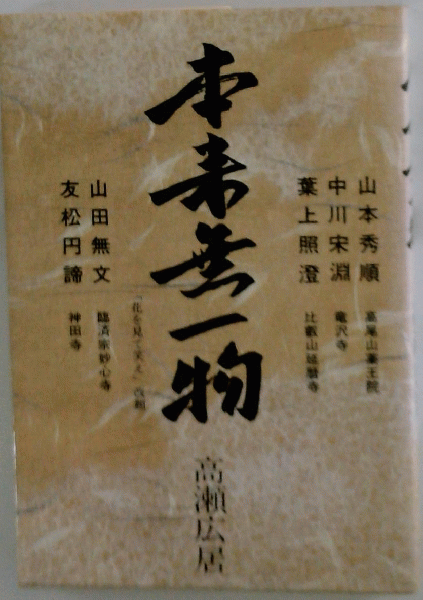 山本秀順 高尾山薬王院
中川宋淵 竜沢寺
葉上照澄 比叡山延暦寺
本来無一物
「花を見て笑え」改題
高瀬広居
山田無文 臨済宗妙心寺
友松円諦 神田寺